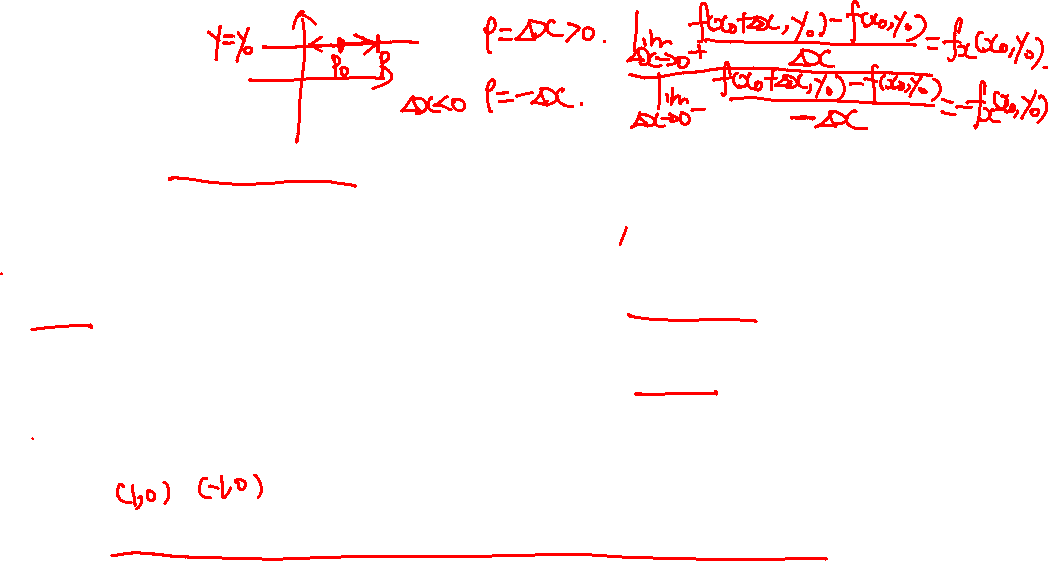 y=y₀ P₀ P
ρ=Δx>0. lim Δx→0⁺ f(x₀+Δx,y₀)-f(x₀,y₀) / Δx = fx(x₀,y₀)
Δx<0 ρ=-Δx. lim Δx→0⁻ f(x₀+Δx,y₀)-f(x₀,y₀) / -Δx = -fx(x₀,y₀)
(1,0) (-1,0)